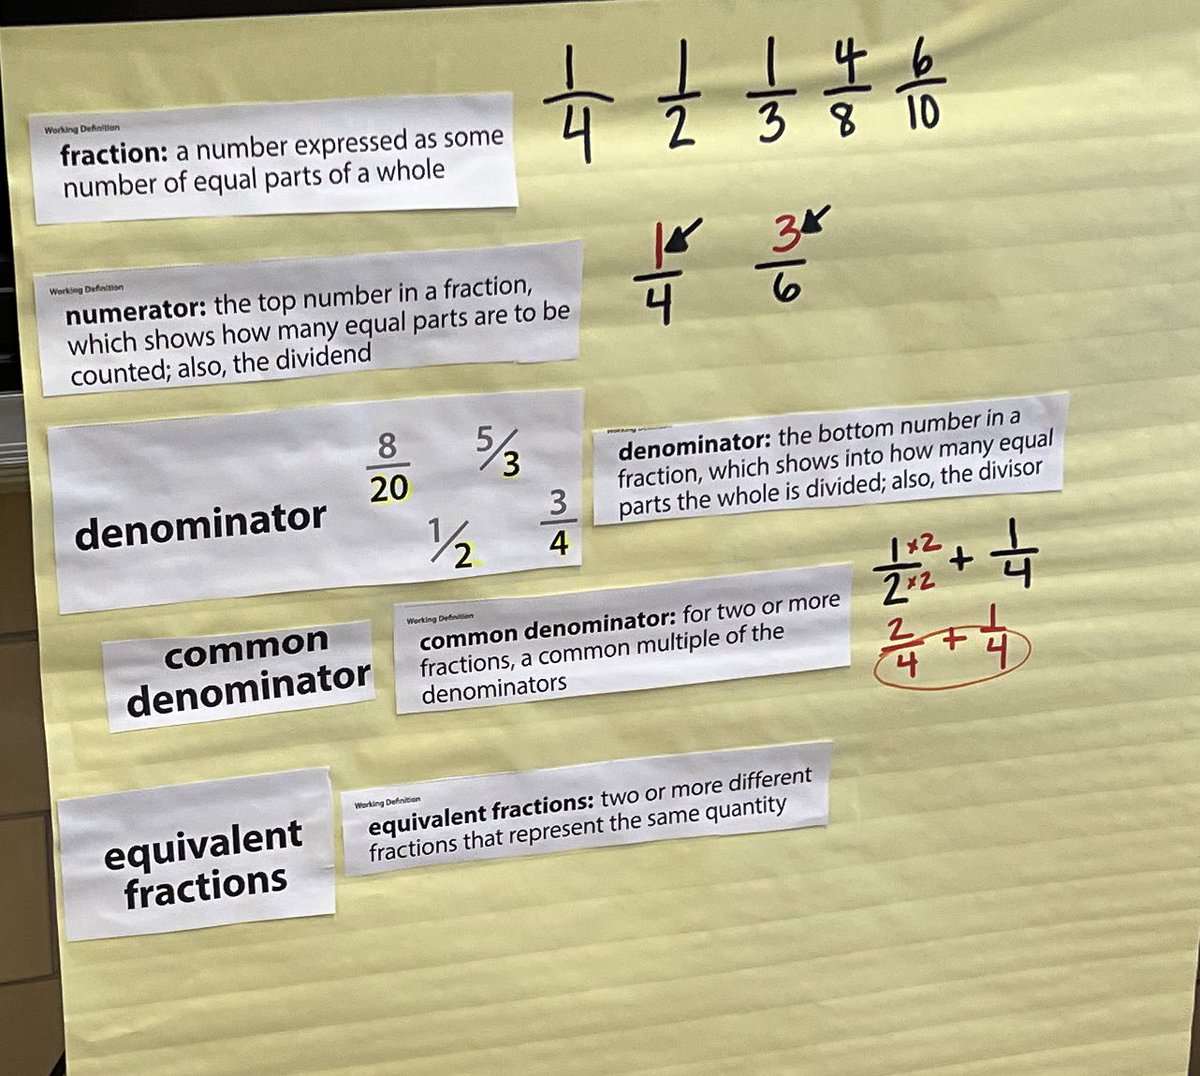 1/4 1/2 1/3 4/8 6/10
Working Definition
fraction: a number expressed as some
number of equal parts of a whole
1/4 3/6
Working Definition
numerator: the top number in a fraction,
which shows how many equal parts are to be
counted; also, the dividend
denominator
8/20 5/3
1/2 3/4
denominator: the bottom number in a
fraction, which shows into how many equal
parts the whole is divided; also, the divisor
1×2/2×2 + 1/4
2/4 + 1/4
common
denominator
Working Definition
common denominator: for two or more
fractions, a common multiple of the
denominators
equivalent
fractions
Working Definition
equivalent fractions: two or more different
fractions that represent the same quantity